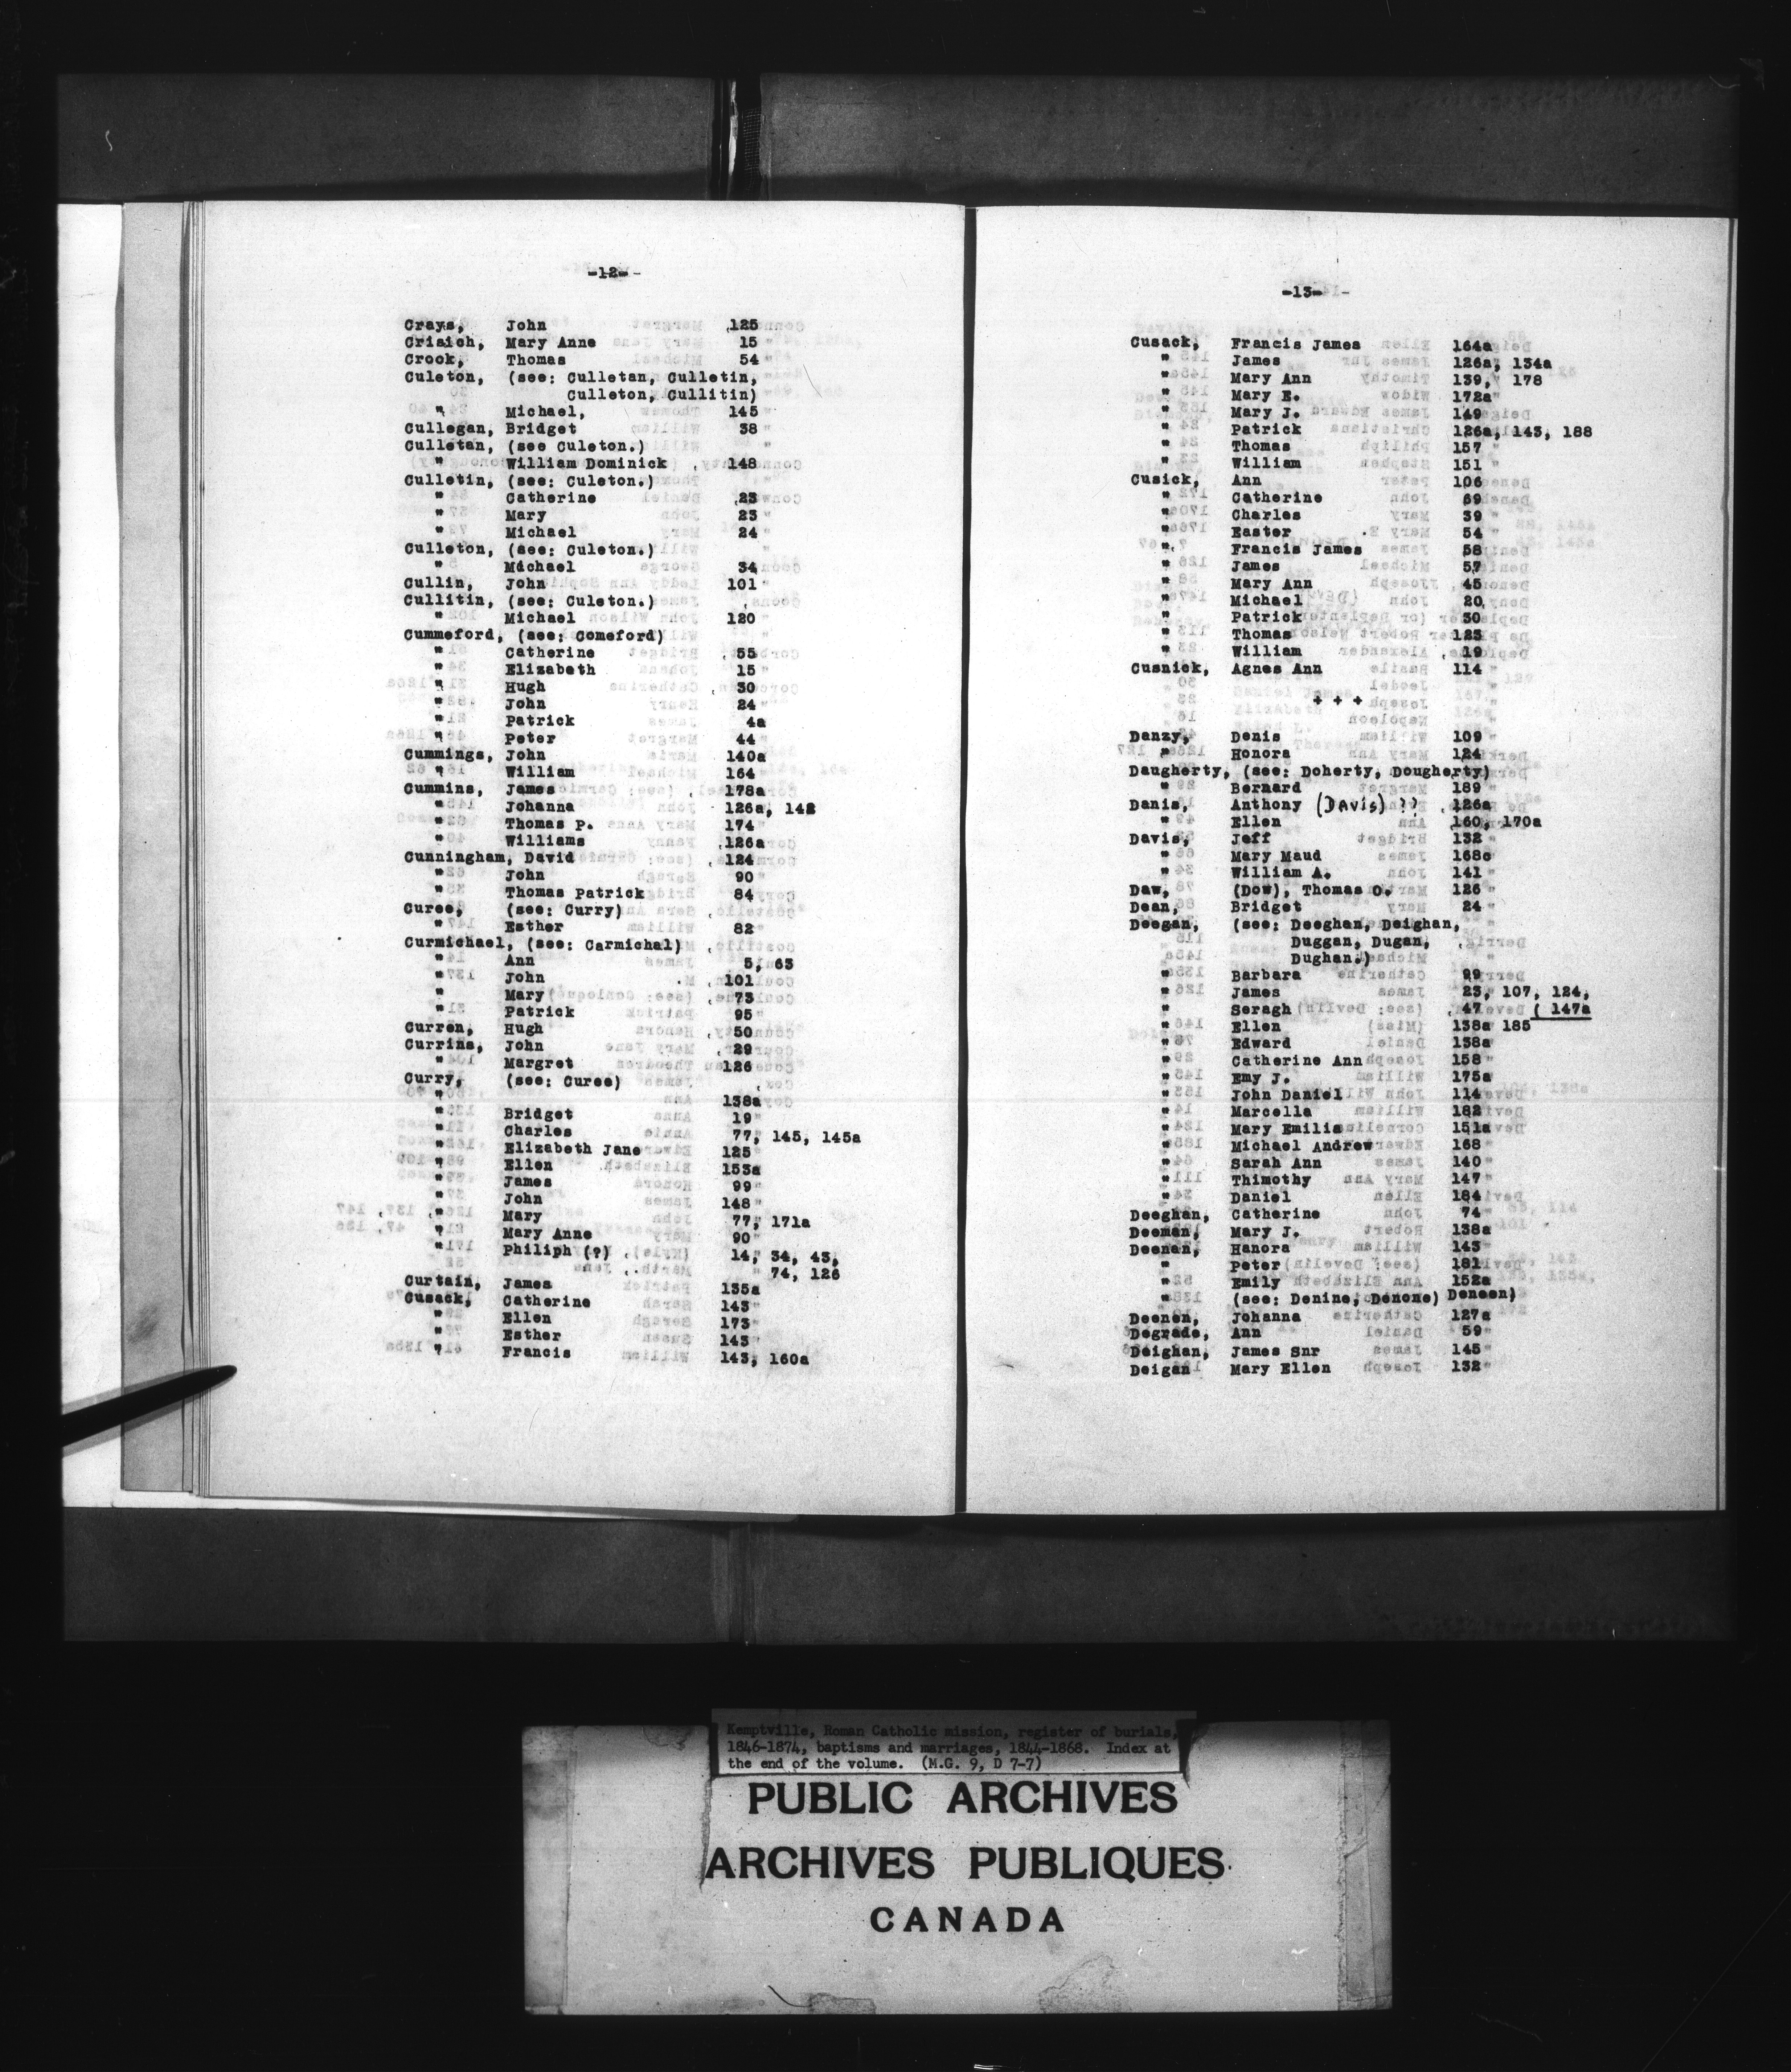 -12-
Crays, John 125
Crisich, Mary Anne 15
Crook, Thomas 54
Culeton, (see: Culletan, Culletin,
Culleton, Cullitin)
" Michael, 145
Cullegan, Bridget 38
Culletan, (see Culeton.)
" William Dominick 148
Culletin, (see: Culeton.)
" Catherine 23
" Mary 23
" Michael 24
Culleton, (see: Culeton.)
" Michael 34
Cullin, John 101
Cullitin, (see: Culeton.)
" Michael 120
Cummeford, (see: Comeford)
" Catherine 55
" Elizabeth 15
" Hugh 30
" John 24
" Patrick 4a
" Peter 44
Cummings, John 140a
" William 164
Cummins, James 178a
" Johanna 126a, 142
" Thomas P. 174
" Williams 126a
Cunningham, David 124
" John 90
" Thomas Patrick 84
Curee, (see: Curry)
" Esther 82
Curmichael, (see: Carmichal)
" Ann 5, 63
" John 101
" Mary 73
" Patrick 95
Curren, Hugh 50
Currins, John 29
" Margret 126
Curry, (see: Curee)
" 138a
" Bridget 19
" Charles 77, 145, 145a
" Elizabeth Jane 125
" Ellen 153a
" James 99
" John 148
" Mary 77, 171a
" Mary Anne 90
" Philiph (?) 14, 34, 43,
74, 126
Curtain, James 135a
Cusack, Catherine 143
" Ellen 173
" Esther 143
" Francis 143, 160a
-13-
Cusack, Francis James 164a
" James 126a, 134a
" Mary Ann 139, 178
" Mary E. 172a
" Mary J. 149
" Patrick 126a, 143, 188
" Thomas 157
" William 151
Cusick, Ann 106
" Catherine 69
" Charles 39
" Easter 54
" Francis James 58
" James 57
" Mary Ann 45
" Michael 20
" Patrick 30
" Thomas 123
" William 19
Cusnick, Agnes Ann 114
+ + +
Danzy, Denis 109
" Honora 124
Daugherty, (see: Doherty, Dougherty)
" Bernard 189
Danis, Anthony (DAvis) ?? 126a
" Ellen 160, 170a
Davis, Jeff 132
" Mary Maud 168c
" William A. 141
Daw, (Dow), Thomas O. 126
Dean, Bridget 24
Deegan, (see: Deeghan, Deighan,
Duggan, Dugan,
Dughan.)
" Barbara 99
" James 23, 107, 124,
" Seragh 47 ( 147a
" Ellen 138a 185
" Edward 138a
" Catherine Ann 158
" Emy J. 175a
" John Daniel 114
" Marcella 182
" Mary Emilia 151a
" Michael Andrew 168
" Sarah Ann 140
" Thimothy 147
" Daniel 184
Deeghan, Catherine 74
Deeman, Mary J. 138a
Deenan, Hanora 143
" Peter 181
" Emily 152a
" (see: Denine, Denone) Deneen)
Deenen, Johanna 127a
Degrade, Ann 59
Deighan, James Snr 145
Deigan Mary Ellen 132
Kemptville, Roman Catholic mission, register of burials,
1846-1874, baptisms and marriages, 1844-1868. Index at
the end of the volume. (M.G. 9, D 7-7)
PUBLIC ARCHIVES
ARCHIVES PUBLIQUES
CANADA